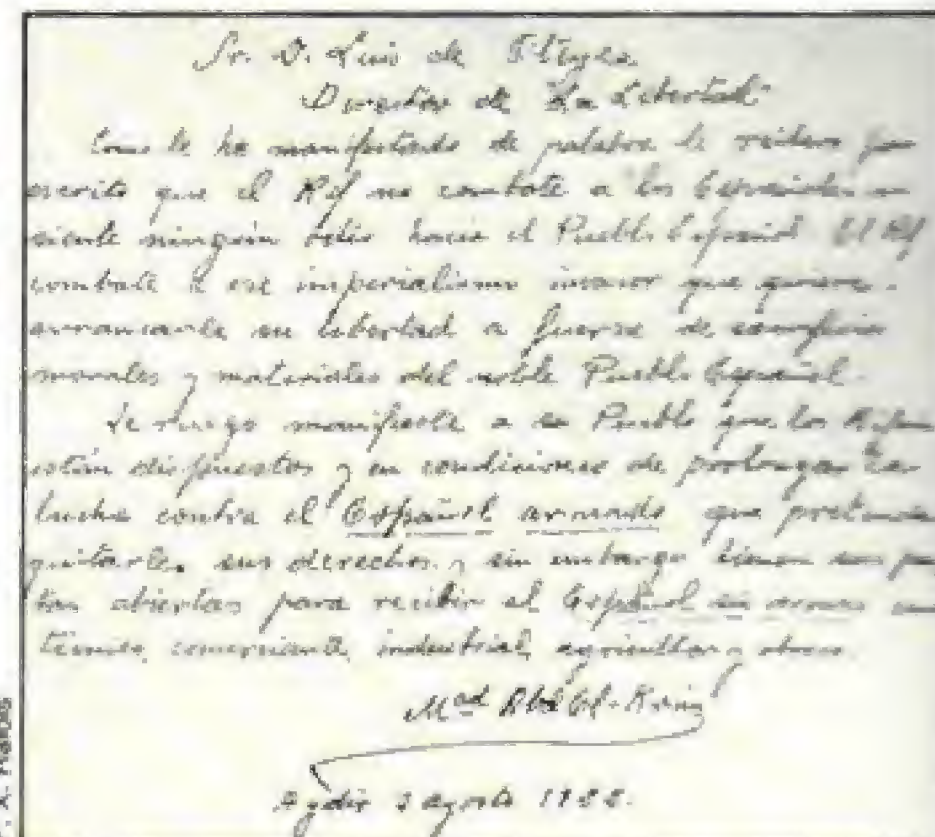 Sr. D. Luis de Oteyza
Director de "La Libertad"
Como le he manifestado de palabra le reitero por
escrito que el Rif no combate a los Españoles ni
siente ningún odio hacia el Pueblo Español. El Rif
combate a ese imperialismo invasor que quiere
arrancarle su libertad a fuerza de sacrificios
morales y materiales del noble Pueblo Español.
Le ruego manifieste a su Pueblo que los Rifeños
están dispuestos y en condiciones de prolongar la
lucha contra el Español armado que pretenda
quitarle sus derechos y sin embargo tienen sus puer
tas abiertas para recibir el Español sin armas como
técnico, comerciante, industrial, agricultor y obrero.
Med Abd El-Krim
Aydir 3 agosto 1922.